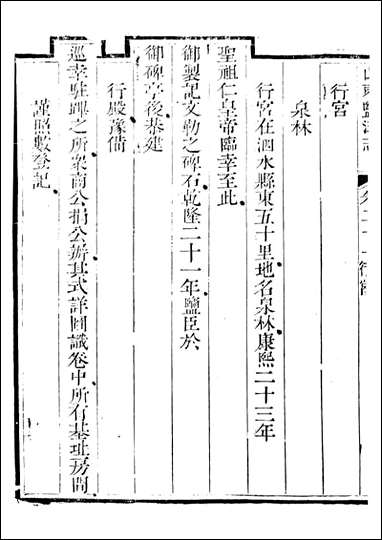 山東鹽法志
行宮
泉林
行宮在泗水縣東五十里地名泉林康熙二十三年
聖祖仁皇帝臨幸至此
御製記文勒之碑石乾隆二十一年鹽臣於
御碑亭後恭建
行殿豫備
巡幸駐蹕之所衆商公捐公辦其式詳圖識卷中所有基址房間
謹照數登記